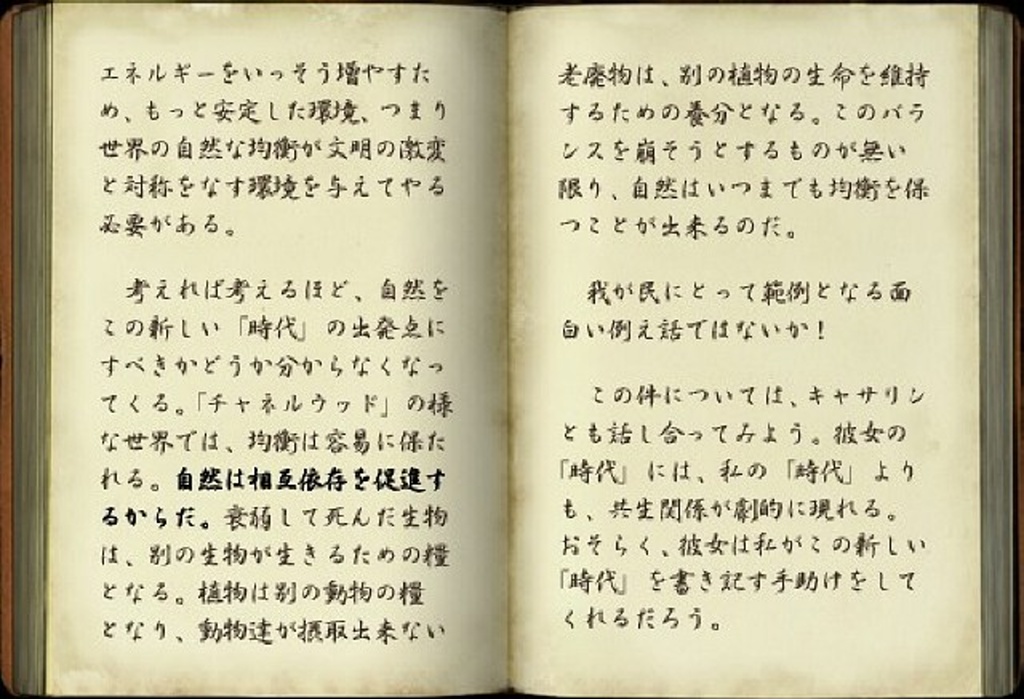 エネルギーをいっそう増やすた
め、もっと安定した環境、つまり
世界の自然な均衡が文明の激変
と対称をなす環境を与えてやる
必要がある。
考えれば考えるほど、自然を
この新しい「時代」の出発点に
すべきかどうか分からなくなっ
てくる。「チャネルウッド」の様
な世界では、均衡は容易に保た
れる。自然は相互依存を促進す
るからだ。衰弱して死んだ生物
は、別の生物が生きるための糧
となる。植物は別の動物の糧
となり、動物達が摂取出来ない
老廃物は、別の植物の生命を維持
するための養分となる。このバラ
ンスを崩そうとするものが無い
限り、自然はいつまでも均衡を保
つことが出来るのだ。
我が民にとって範例となる面
白い例え話ではないか！
この件については、キャサリン
とも話し合ってみよう。彼女の
「時代」には、私の「時代」より
も、共生関係が劇的に現れる。
おそらく、彼女は私がこの新しい
「時代」を書き記す手助けをして
くれるだろう。